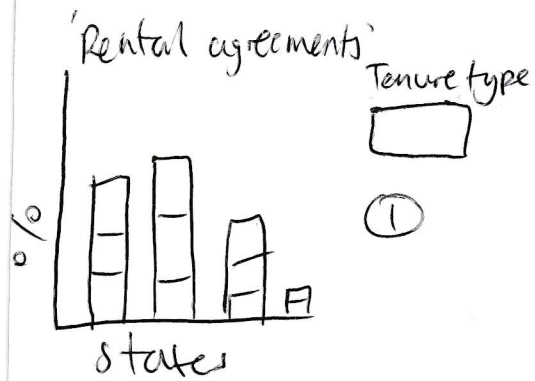 'Rental agreements'
Tenure type
1
%
States